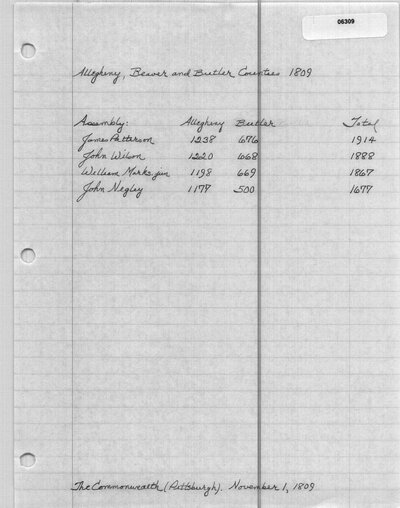 06309
Allegheny, Beaver and Butler Counties 1809
Assembly: Allegheny Butler Total
James Patterson 1238 676 1914
John Wilson 1220 668 1888
William Marks jun 1198 669 1867
John Negley 1177 500 1677
The Commonwealth (Pittsburgh). November 1, 1809